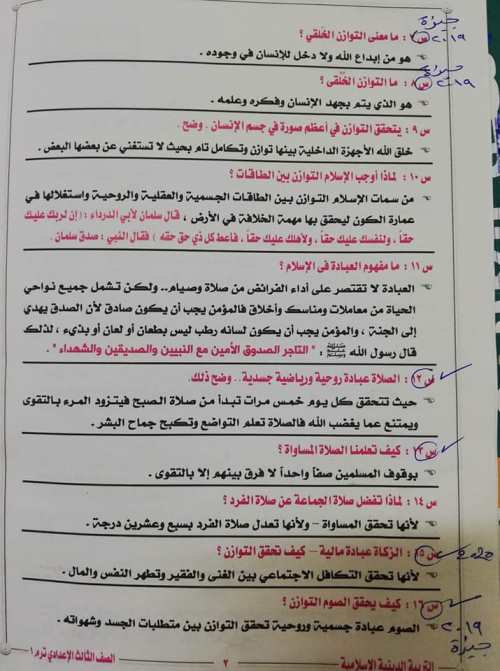 جيزة
٢٠١٩
س ٧ : ما معنى التوازن الخَلقي ؟
هو من إبداع الله ولا دخل للإنسان في وجوده .
٢٠١٩
س ٨ : ما التوازن الخُلقى ؟
هو الذي يتم بجهد الإنسان وفكره وعلمه .
س ٩ : يتحقق التوازن في أعظم صورة في جسم الإنسان . وضح .
خلق الله الأجهزة الداخلية بينها توازن وتكامل تام بحيث لا تستغني عن بعضها البعض .
س ١٠ : لماذا أوجب الإسلام التوازن بين الطاقات ؟
من سمات الإسلام التوازن بين الطاقات الجسمية والعقلية والروحية واستغلالها في
عمارة الكون ليحقق بها مهمة الخلافة في الأرض ، قال سلمان لأبي الدرداء : (إن لربك عليك
حقاً ، ولنفسك عليك حقاً ، ولأهلك عليك حقاً ، فاعط كل ذي حق حقه ) فقال النبي : صدق سلمان .
س ١١ : ما مفهوم العبادة فى الإسلام ؟
العبادة لا تقتصر على أداء الفرائض من صلاة وصيام.. ولكن تشمل جميع نواحي
الحياة من معاملات ومناسك وأخلاق فالمؤمن يجب أن يكون صادق لأن الصدق يهدي
إلى الجنة ، والمؤمن يجب أن يكون لسانه رطب ليس بطعان أو لعان أو بذيء ، لذلك
قال رسول الله ﷺ : " التاجر الصدوق الأمين مع النبيين والصديقين والشهداء " .
س ١٢ : الصلاة عبادة روحية ورياضية جسدية .. وضح ذلك.
حيث تتحقق كل يوم خمس مرات تبدأ من صلاة الصبح فيتزود المرء بالتقوى
ويمتنع عما يغضب الله فالصلاة تعلم التواضع وتكبح جماح البشر .
س ١٣ : كيف تعلمنا الصلاة المساواة ؟
بوقوف المسلمين صفاً واحداً لا فرق بينهم إلا بالتقوى .
س ١٤ : لماذا تفضل صلاة الجماعة عن صلاة الفرد ؟
لأنها تحقق المساواة – ولأنها تعدل صلاة الفرد بسبع وعشرين درجة .
س ١٥ : الزكاة عبادة مالية – كيف تحقق التوازن ؟
2020
لأنها تحقق التكافل الاجتماعي بين الغنى والفقير وتطهر النفس والمال .
س ١٦ : كيف يحقق الصوم التوازن ؟
الصوم عبادة جسمية وروحية تحقق التوازن بين متطلبات الجسد وشهواته .
٢٠١٩
جيزة
التربية الدينية الإسلامية
٢
الصف الثالث الإعدادي ترم ١